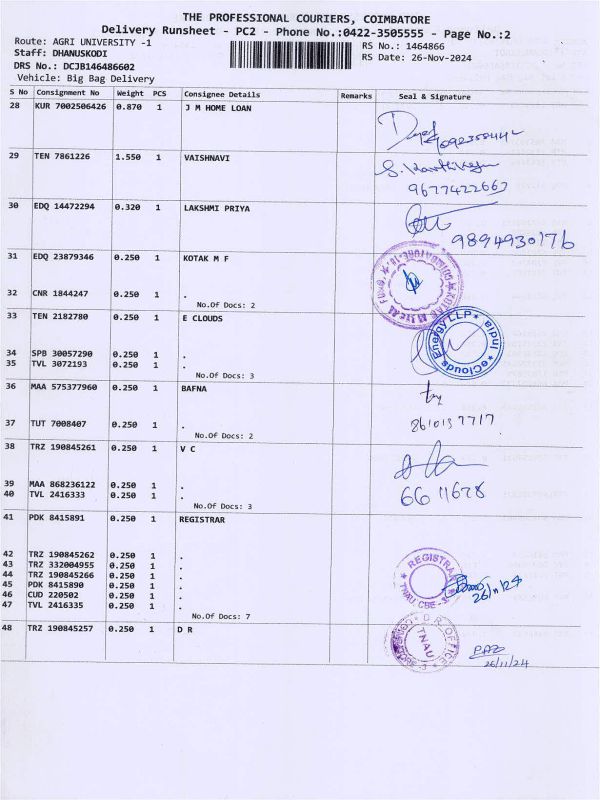 THE PROFESSIONAL COURIERS, COIMBATORE
Delivery Runsheet - PC2 - Phone No.:0422-3505555 - Page No.:2
Route: AGRI UNIVERSITY -1
RS No.: 1464866
Staff: DHANUSKODI
RS Date: 26-Nov-2024
DRS No.: DCJB146486602
Vehicle: Big Bag Delivery
S No Consignment No Weight PCS Consignee Details Remarks Seal & Signature
28 KUR 7002506426 0.870 1 J M HOME LOAN
29 TEN 7861226 1.550 1 VAISHNAVI
9677422667
30 EDQ 14472294 0.320 1 LAKSHMI PRIYA
9894930176
31 EDQ 23879346 0.250 1 KOTAK M F
32 CNR 1844247 0.250 1 .
No.Of Docs: 2
33 TEN 2182780 0.250 1 E CLOUDS
eClouds Energy LLP * India *
34 SPB 30057290 0.250 1 .
35 TVL 3072193 0.250 1 .
No.Of Docs: 3
36 MAA 575377960 0.250 1 BAFNA
37 TUT 7008407 0.250 1 .
8610137717
No.Of Docs: 2
38 TRZ 190845261 0.250 1 V C
39 MAA 868236122 0.250 1 .
40 TVL 2416333 0.250 1 .
6611678
No.Of Docs: 3
41 PDK 8415891 0.250 1 REGISTRAR
42 TRZ 190845262 0.250 1 .
43 TRZ 332004955 0.250 1 .
44 TRZ 190845266 0.250 1 .
45 PDK 8415890 0.250 1 .
46 CUD 220502 0.250 1 .
47 TVL 2416335 0.250 1 .
REGISTRAR TNAU, CBE-3
26/11/24
No.Of Docs: 7
48 TRZ 190845257 0.250 1 D R
D.R. OFFICE TNAU CBE-3
26/11/24